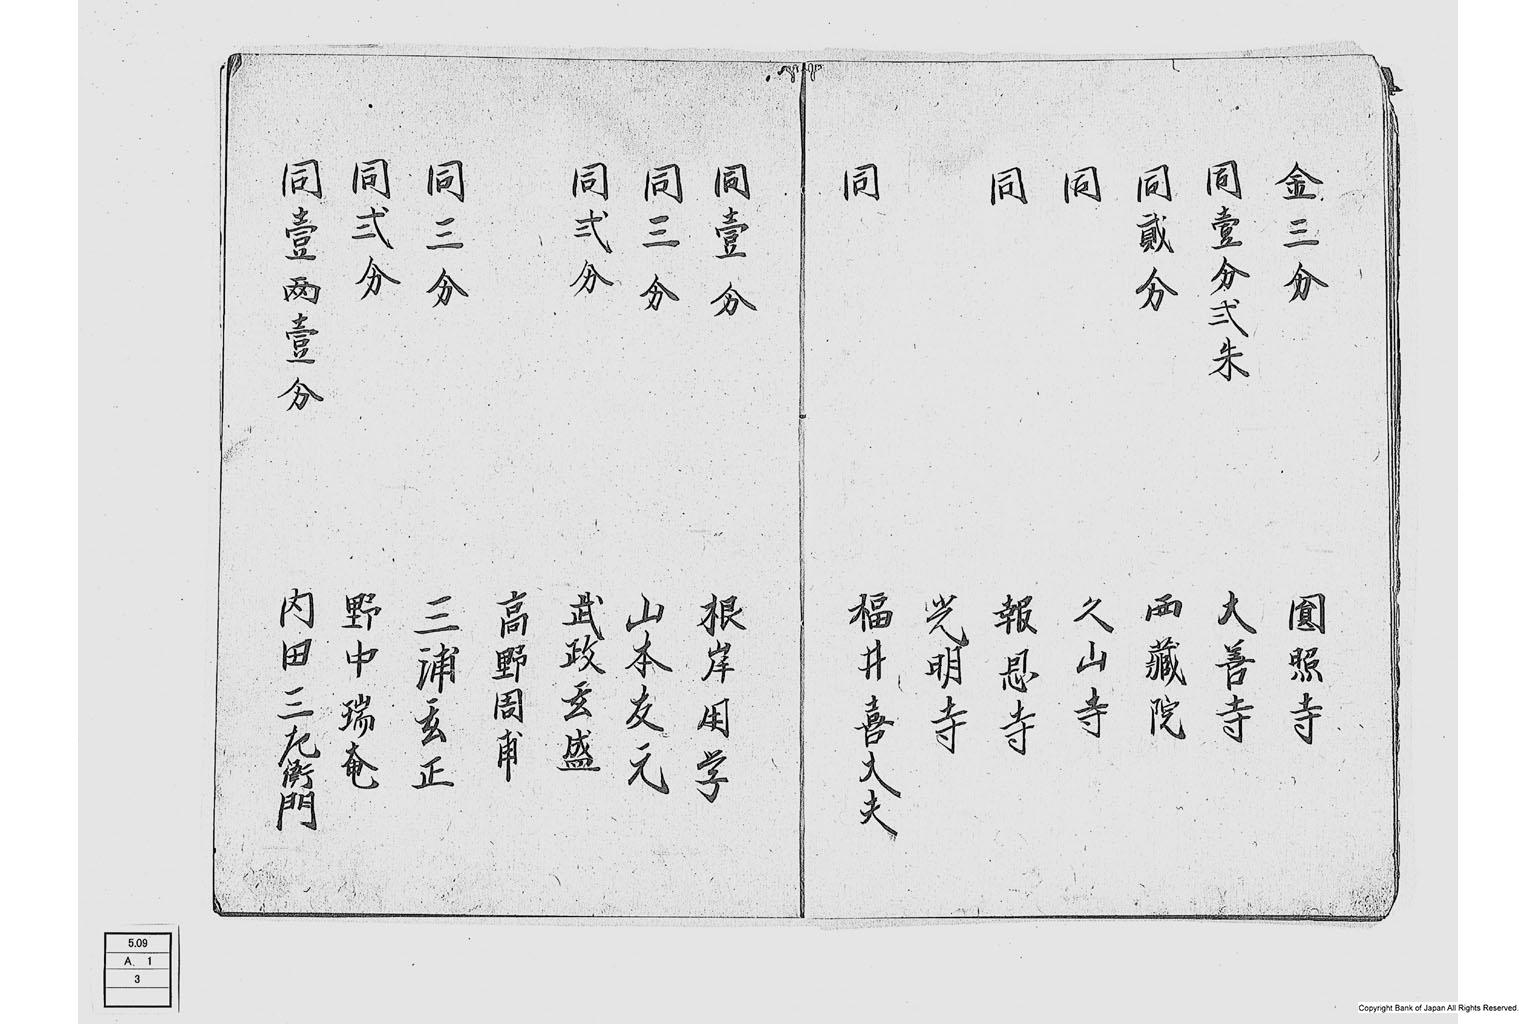 金三分 圓照寺
同壹分弍朱 大善寺
同貳分 西藏院
同 久山寺
同 報恩寺
光明寺
同 福井喜大夫
同壹分 根岸用学
同三分 山本友元
同弍分 武政玄盛
高野周甫
同三分 三浦玄正
同弍分 野中瑞奄
同壹両壹分 内田三左衛門
5.09
A. 1
3
Copyright Bank of Japan All Rights Reserved.